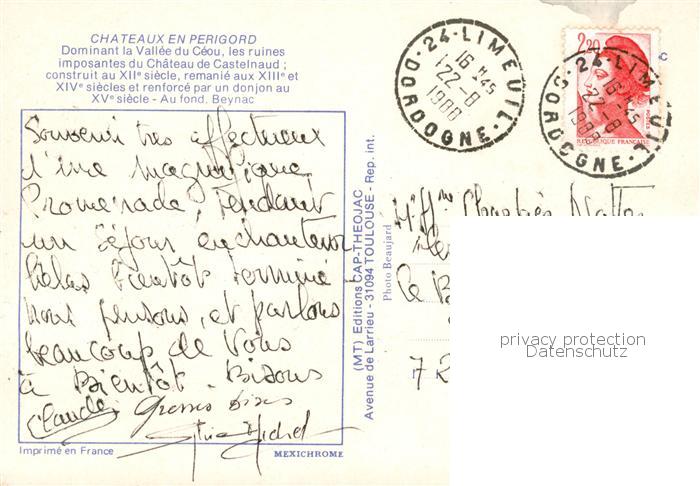 CHATEAUX EN PERIGORD
Dominant la Vallée du Céou, les ruines
imposantes du Château de Castelnaud ;
construit au XIIe siècle, remanié aux XIIIe et
XIVe siècles et renforcé par un donjon au
XVe siècle - Au fond. Beynac
Souvenir très affectueux
d'une magnifique
Promenade, Pendant
un séjour enchanteur
hélas bientôt terminé -
nous pensons, et parlons
beaucoup de Vous
à Bientôt - Bisous
Claude. Grosses bises
Michel
Imprimé en France
MEXICHROME
(MT) Editions CAP-THEOJAC
Avenue de Larrieu - 31094 TOULOUSE - Rep. int.
Photo Beaujard
24-LIMEUIL
16 H 45
22-8
1988
DORDOGNE
2,20
REPUBLIQUE FRANÇAISE
24-LIMEUIL
16 H 45
22-8
1988
DORDOGNE
C
72
privacy protection
Datenschutz